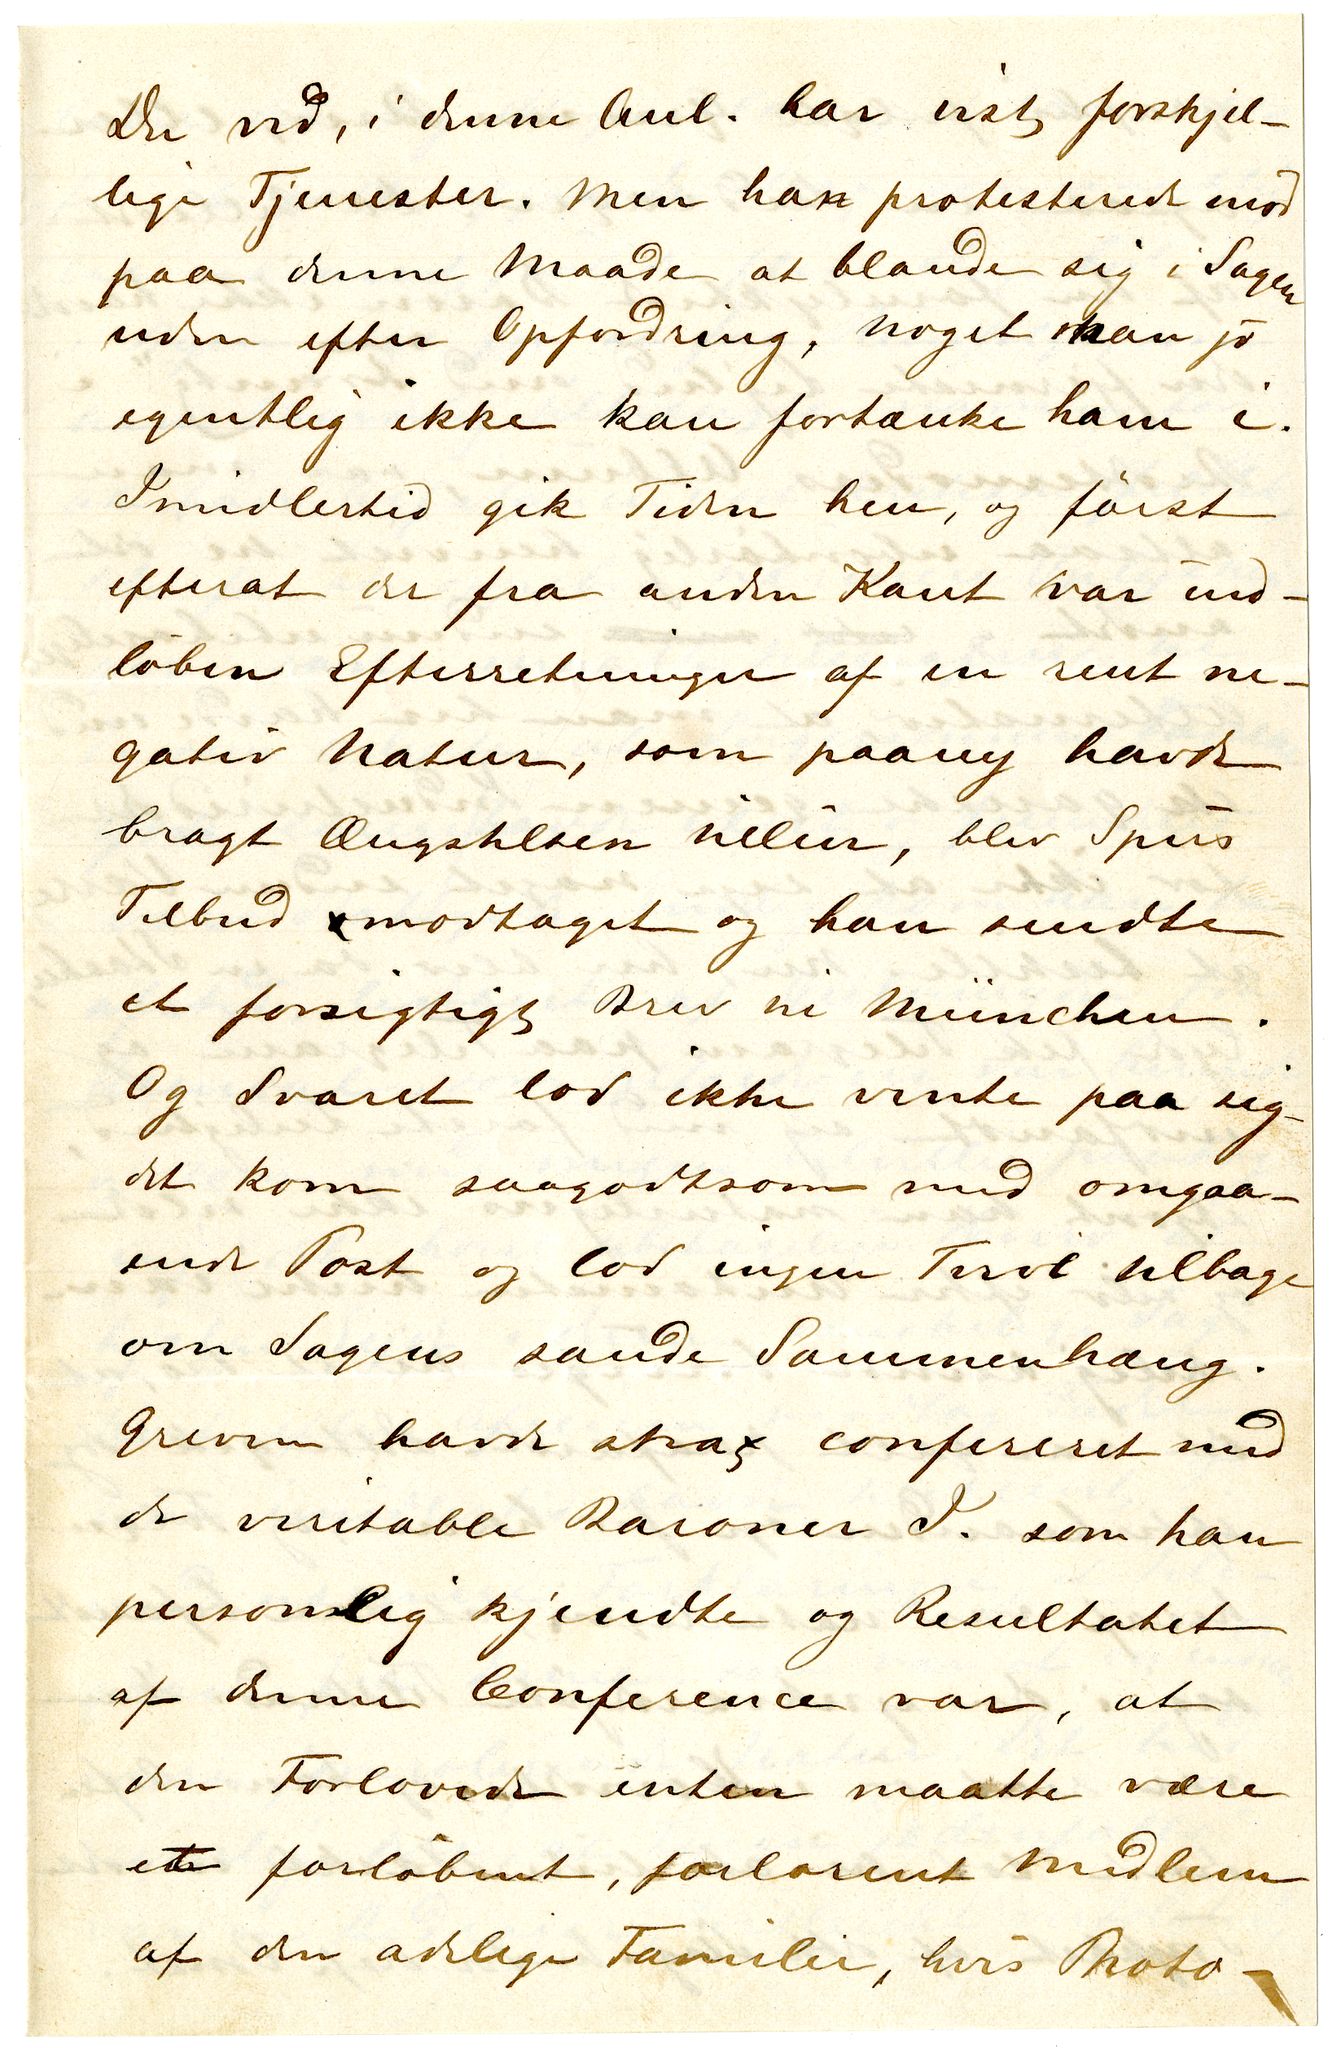 De ved, i denne Anl. har vist forskjel-
lige Tjenester. Men han protesterede mod
paa denne Maade at blande sig i Sagen
uden efter Opfordring, noget man jo
egentlig ikke kan fortænke ham i.
Imidlertid gik Tiden hen, og först
efterat der fra anden Kant var ind-
löben Efterretninger af en rent ne-
gativ Natur, som paany havde
bragt Ængstelsen tillive, blev
Tilbud modtaget og han sendte
et forsigtigt Brev til München.
Og Svaret lod ikke vente paa sig
det kom saagodtsom med omgaa-
ende Post og lod ingen Tvivl tilbage
om Sagens sande Sammenhæng.
Greven havde strax confereret med
de veritable Baroner I. som han
personlig kjendte og Resultatet
af denne Conference var, at
den Forlovede enten maatte være
et forlöbent, forlorent Medlem
af den adelige Familie, hvis Proto-